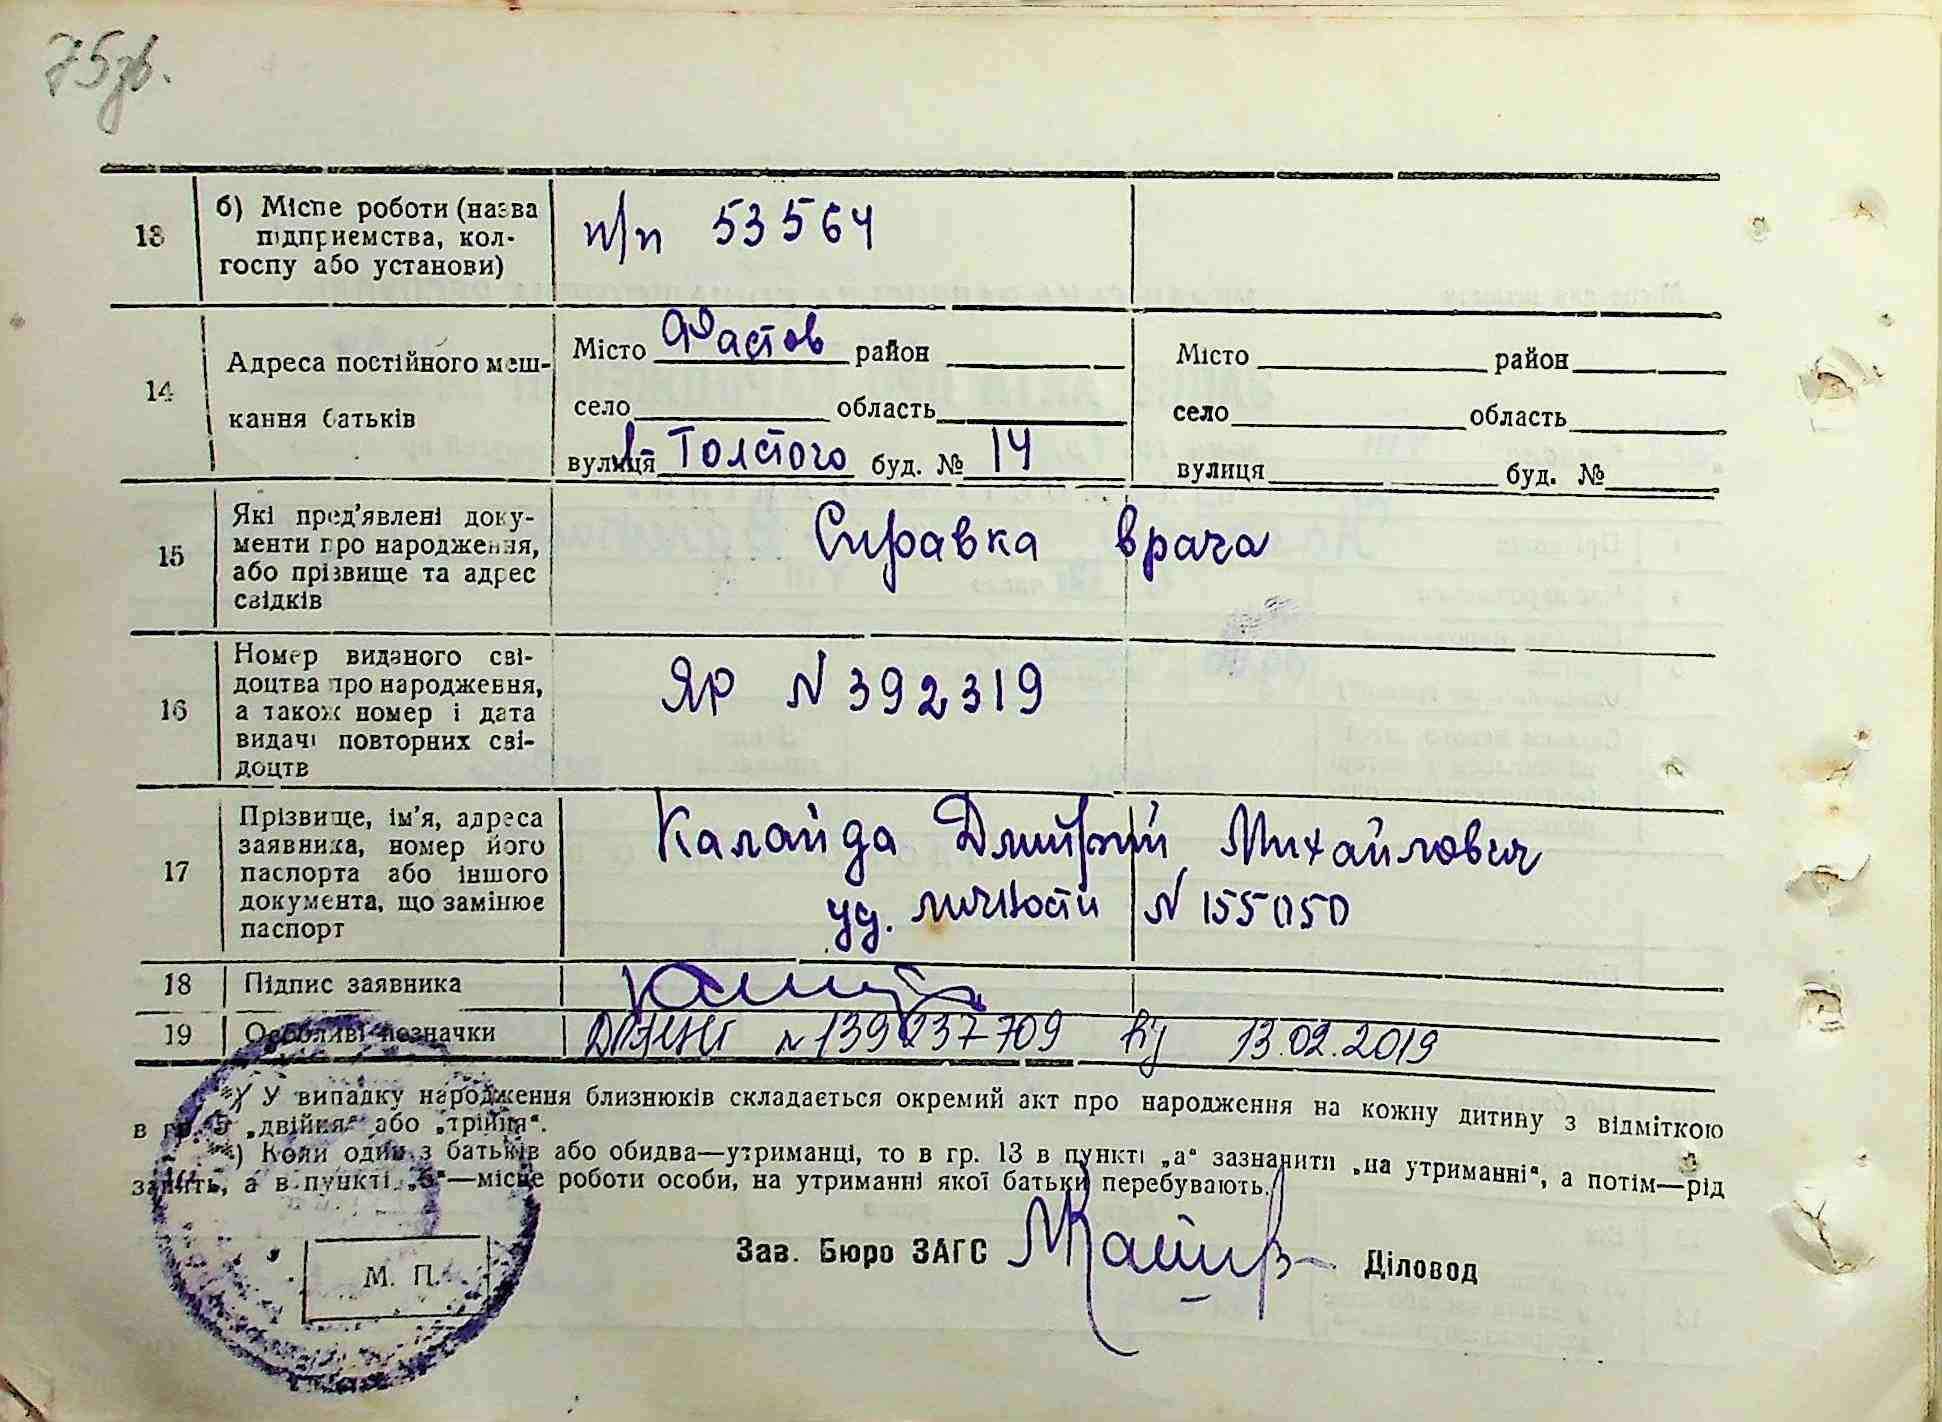 75зв.
13 б) Місце роботи (назва підприємства, колгоспу або установи) п/п 53564
14 Адреса постійного мешкання батьків
Місто Фастов район
село область
вулиця Л-Толстого буд. № 14
Місто район
село область
вулиця буд. №
15 Які пред'явлені документи про народження, або прізвище та адрес свідків Справка врача
16 Номер виданого свідоцтва про народження, а також номер і дата видачі повторних свідоцтв ЯР N 392319
17 Прізвище, ім'я, адреса заявника, номер його паспорта або іншого документа, що замінює паспорт Калайда Дмитрий Михайлович
уд. личности N 155050
18 Підпис заявника
19 Особливі позначки N 139237709 13.02.2019
*) У випадку народження близнюків складається окремий акт про народження на кожну дитину з відміткою
в гр. 5 „двійня“ або „трійня“.
**) Коли один з батьків або обидва—утриманці, то в гр. 13 в пункті „а“ зазначити „на утриманні“, а потім—рід
занять, а в пункті „б“—місце роботи особи, на утриманні якої батьки перебувають.
Зав. Бюро ЗАГС Діловод
М. П.